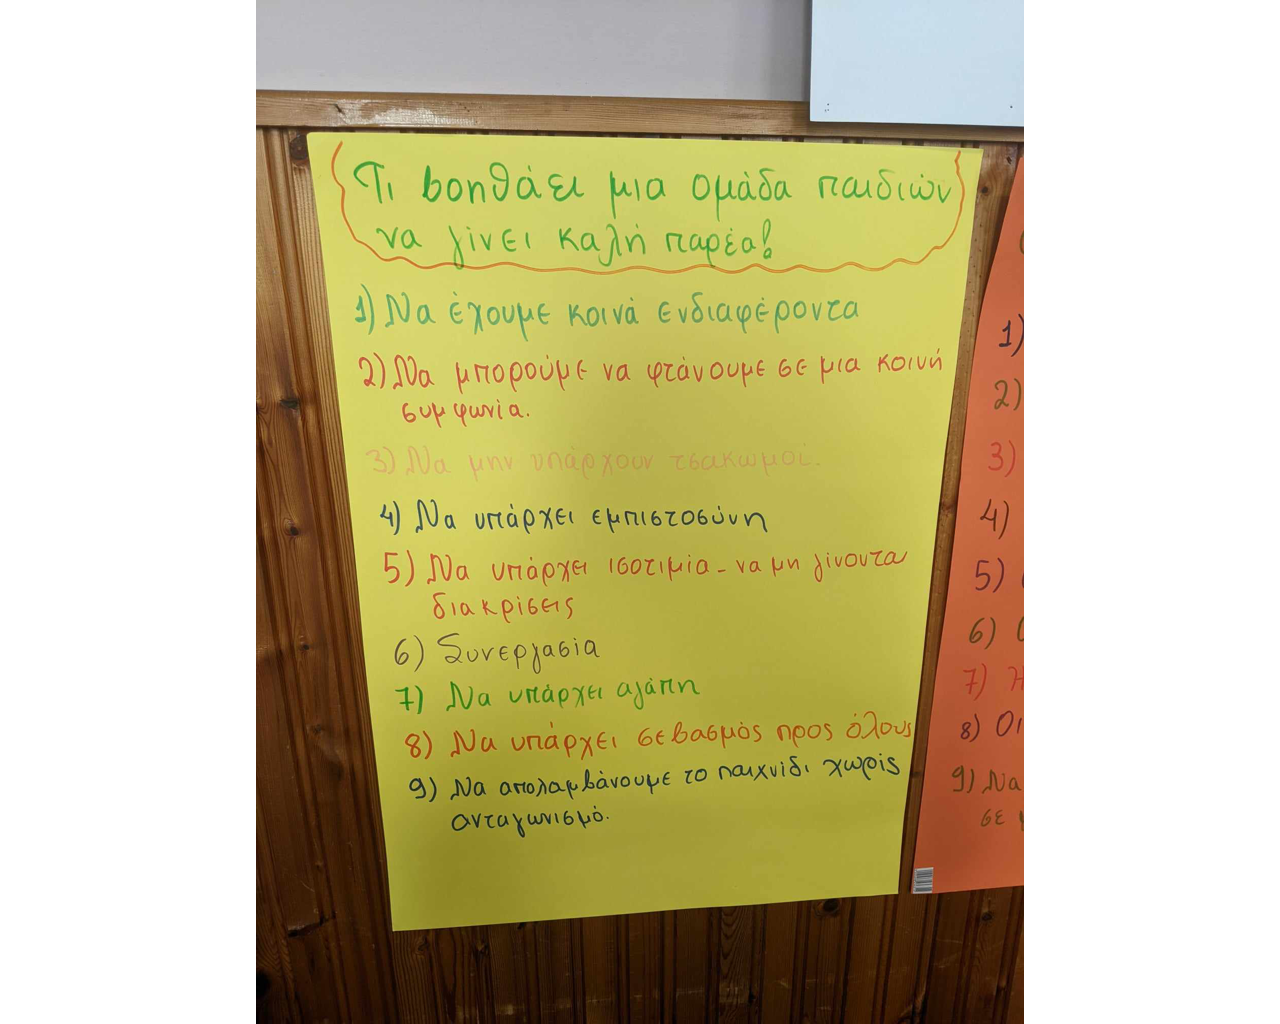 Τι βοηθάει μια ομάδα παιδιών
να γίνει καλή παρέα!
1) Να έχουμε κοινά ενδιαφέροντα
2) Να μπορούμε να φτάνουμε σε μια κοινή
συμφωνία.
3) Να μην υπάρχουν τσακωμοί.
4) Να υπάρχει εμπιστοσύνη
5) Να υπάρχει ισοτιμία - να μη γίνονται
διακρίσεις
6) Συνεργασία
7) Να υπάρχει αγάπη
8) Να υπάρχει σεβασμός προς όλους
9) Να απολαμβάνουμε το παιχνίδι χωρίς
ανταγωνισμό.
1)
2)
3)
4)
5)
6)
7)
8) Οι
9) Να
σε